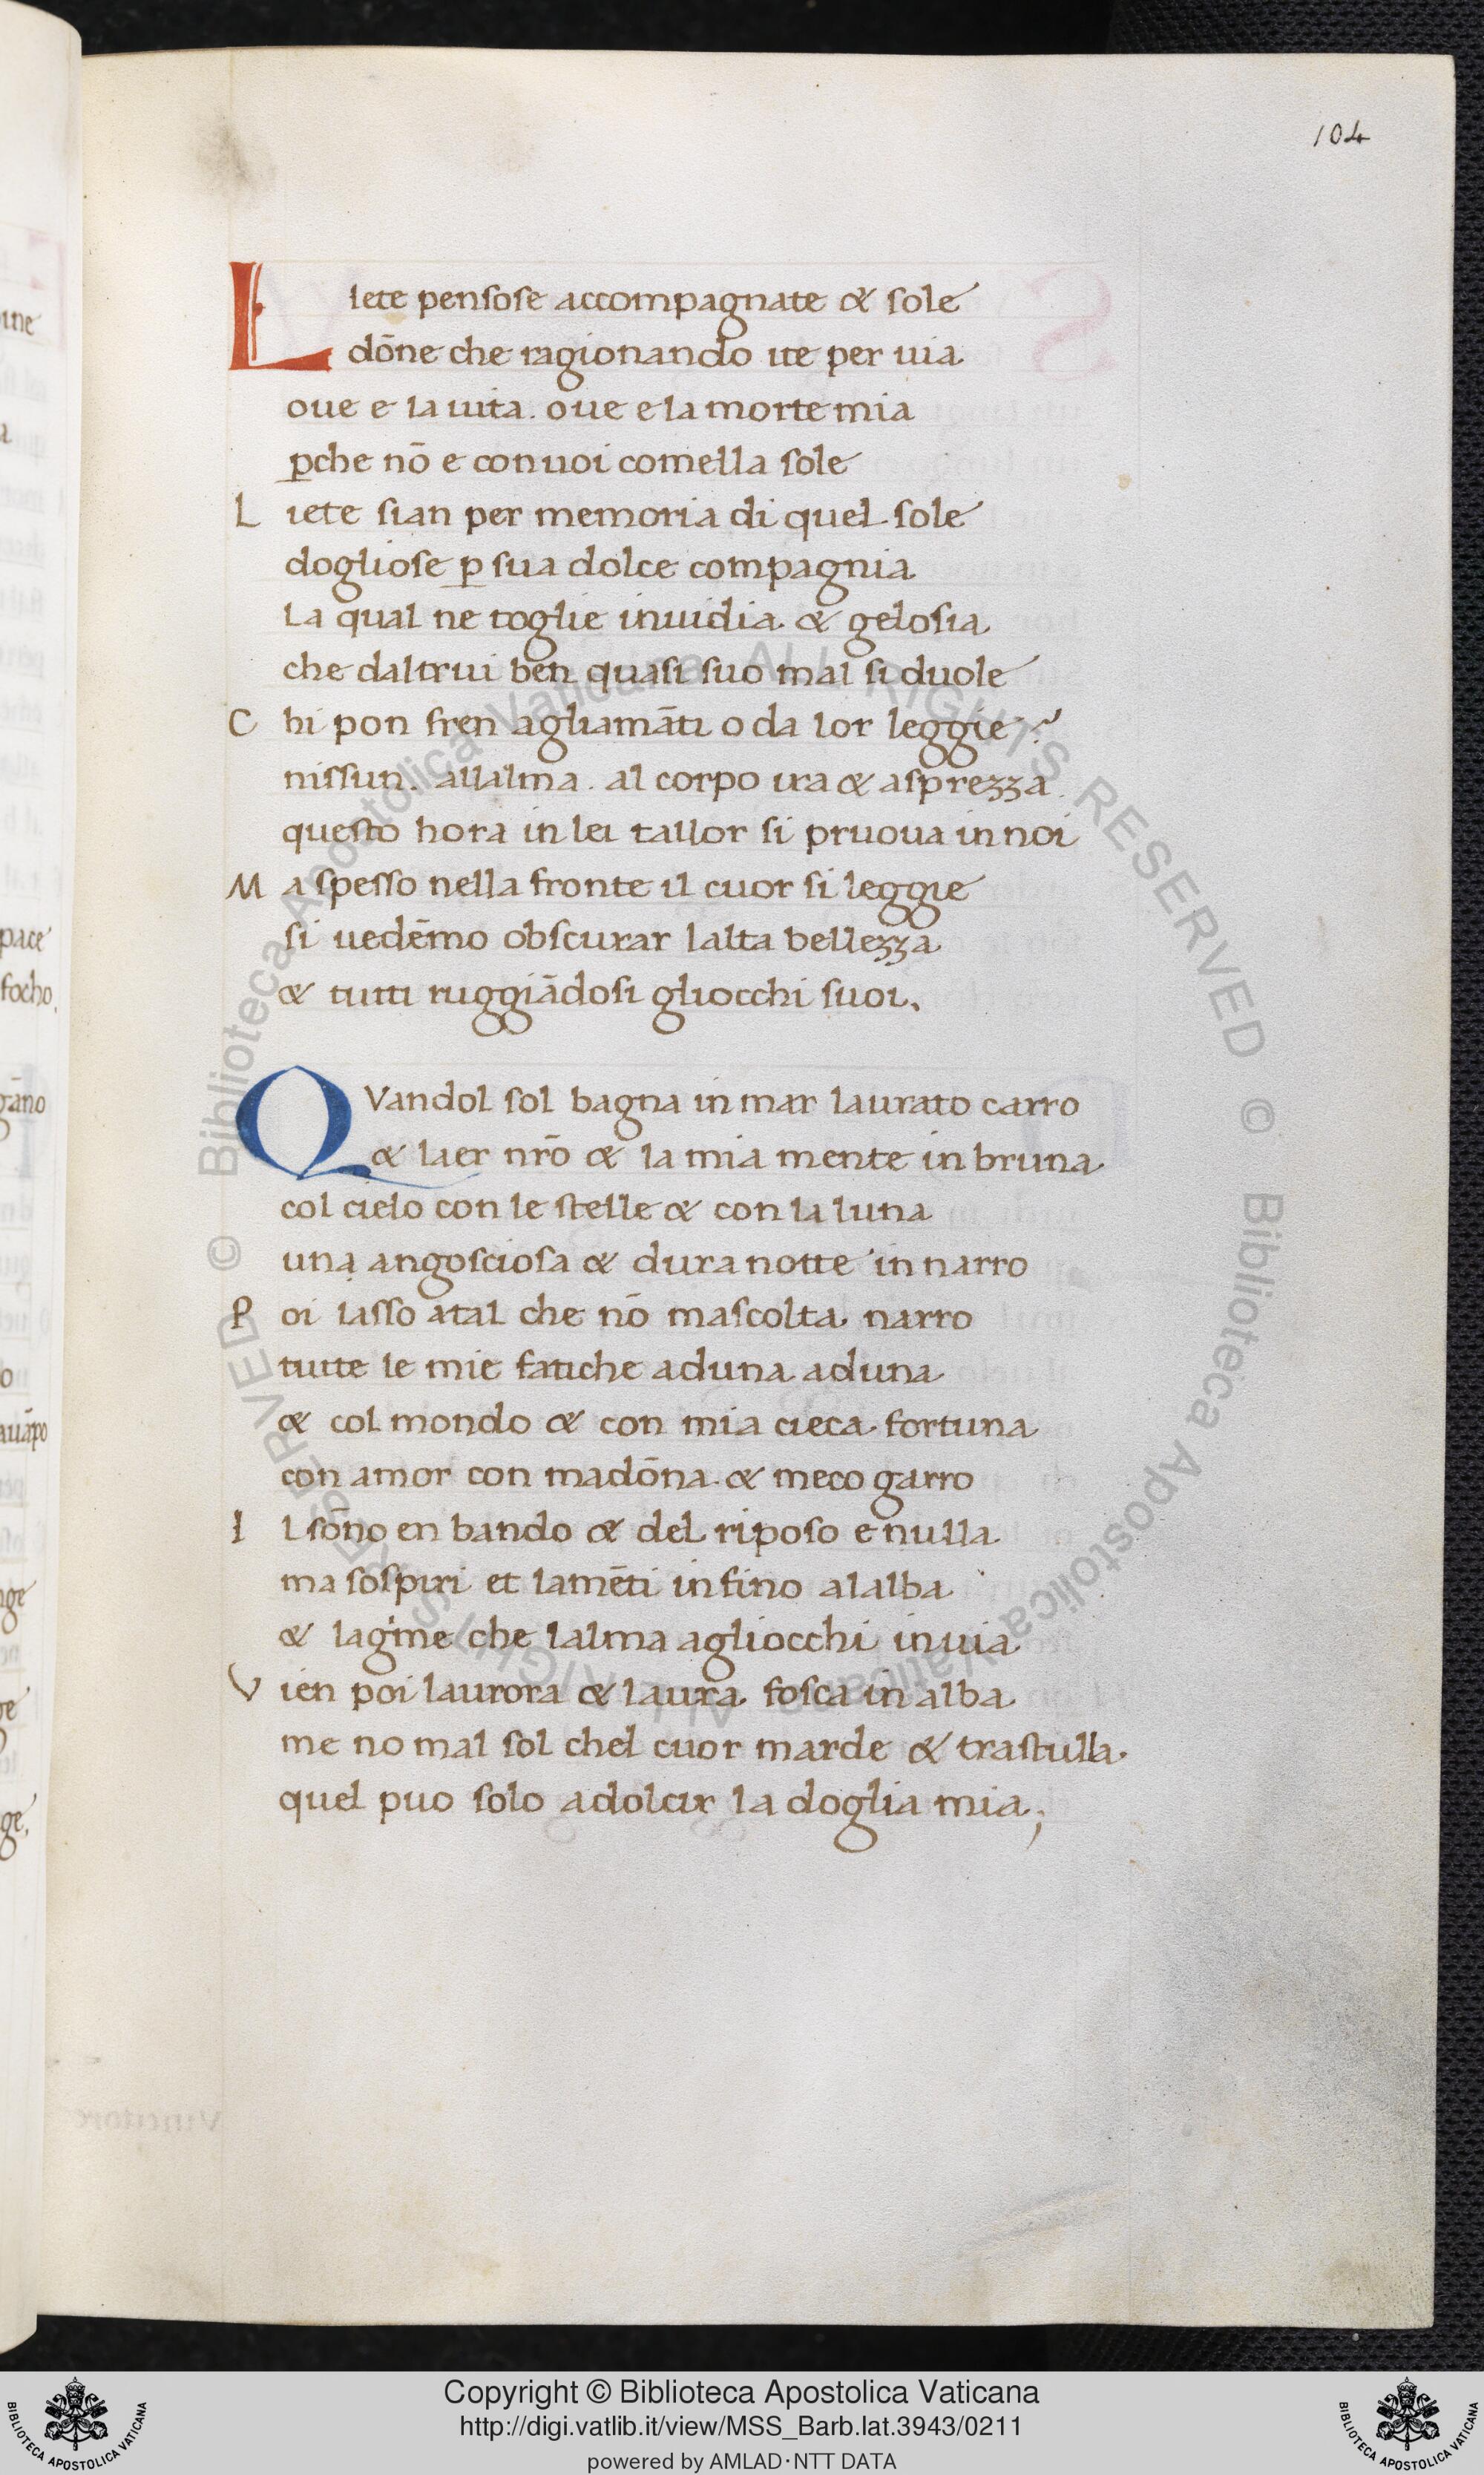 104
Liete pensose accompagnate & sole
dōne che ragionando ite per uia
oue e la uita. oue e la morte mia
ꝑche nō e con uoi comella sole
L iete sian per memoria di quel sole
dogliose ꝑ sua dolce compagnia
La qual ne toglie inuidia & gelosia
che daltrui ben quasi suo mal si duole
C hi pon fren agliamāti o da lor leggie?
nissun. allalma. al corpo ira & asprezza.
questo hora in lei tallor si pruoua in noi
M a spesso nella fronte il cuor si leggie
si uedēmo obscurar lalta bellezza
& tutti ruggiādosi gliocchi suoi.
QVandol sol bagna in mar laurato carro
& laer nr̄o & la mia mente in bruna
col cielo con le stelle & con la luna
una angosciosa & dura notte in narro
P oi lasso atal che nō mascolta narro
tutte le mie fatiche aduna aduna
& col mondo & con mia cieca fortuna
con amor con madōna & meco garro
I l sōno en bando & del riposo e nulla
ma sospiri et lamēti infino alalba
& lagime che lalma agliocchi inuia
V ien poi laurora & laura fosca in alba
me no mal sol chel cuor marde & trastulla
quel puo solo adolcir la doglia mia;
pace
focho.
gāno
nge
ge.
© Biblioteca Apostolica Vaticana ALL RIGHTS RESERVED © Biblioteca Apostolica Vaticana ALL RIGHTS RESERVED
Copyright © Biblioteca Apostolica Vaticana
http://digi.vatlib.it/view/MSS_Barb.lat.3943/0211
powered by AMLAD·NTT DATA
BIBLIOTECA APOSTOLICA VATICANA
BIBLIOTECA APOSTOLICA VATICANA